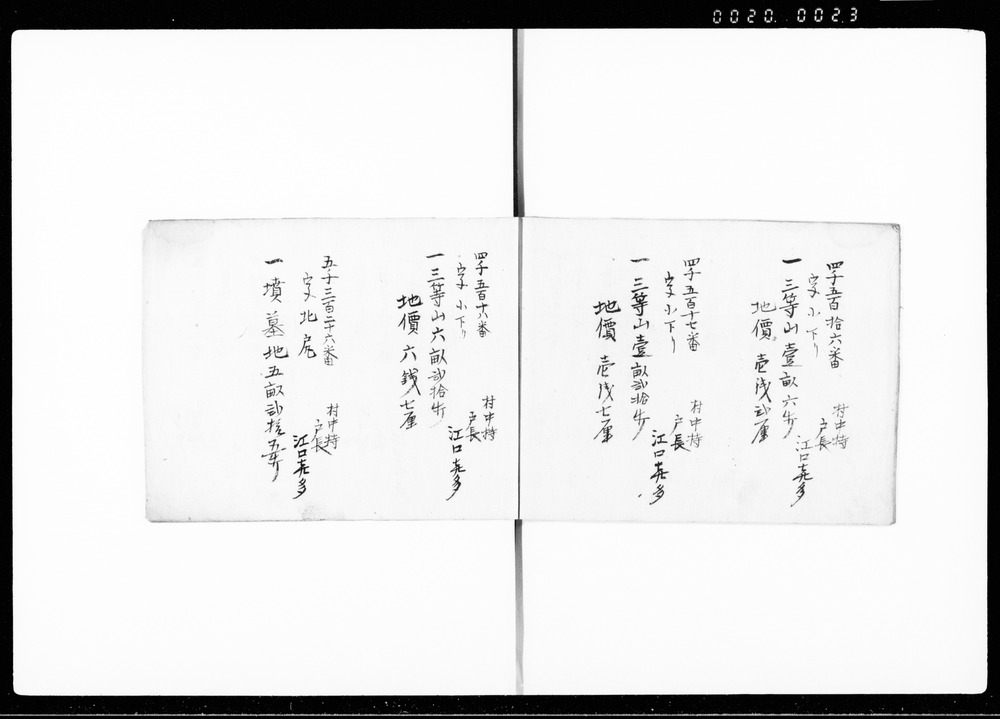 0020. 0023
四千五百拾六番
字小下り
一三等山壹畝六歩
地價壱戋弐厘
村中持
戸長
江口喜多
四千五百十七番
字小下り
一三等山壹畝弐拾歩
地價壱戋七厘
村中持
戸長
江口喜多
四千五百十八番
字小下り
一三等山六畝弐拾歩
地價六銭七厘
村中持
戸長
江口喜多
五千三百二十六番
字北尻
一墳墓地五畝弐拾五歩
村中持
戸長
江口喜多